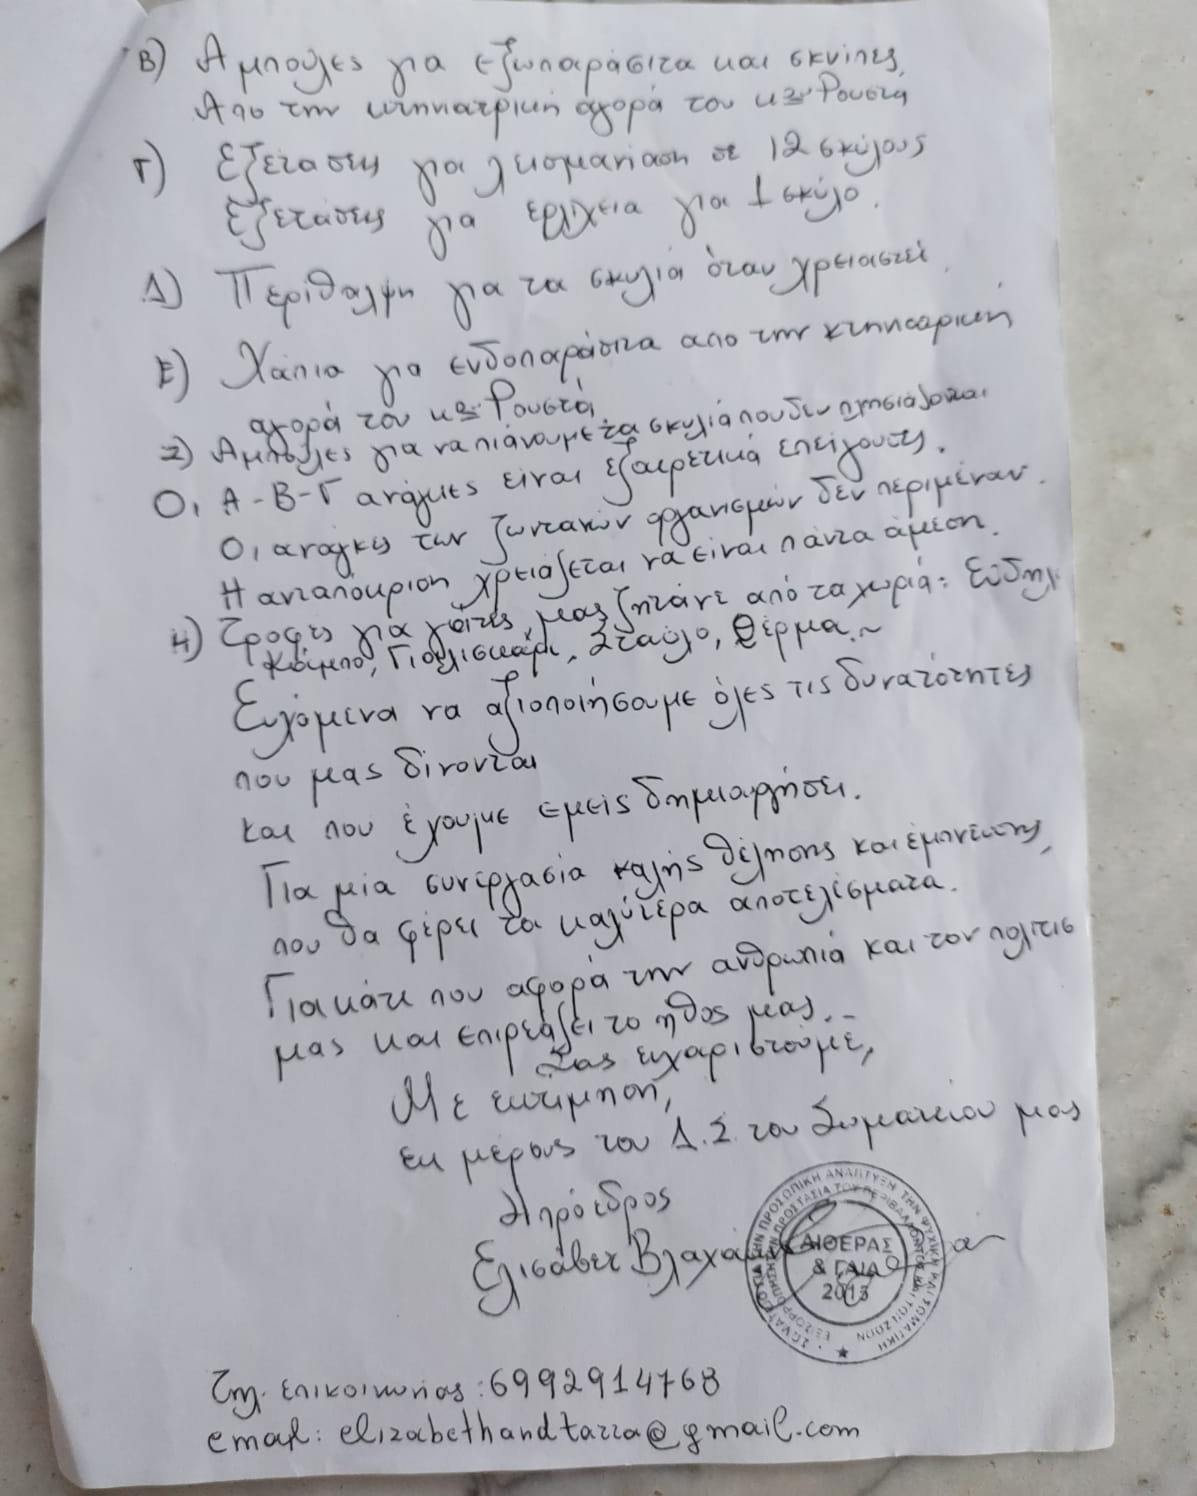 Β) Αμπούλες για εξωπαράσιτα και σκνίπες,
Απο την κτηνιατρικη αγορά του κου Ρουστα
Γ) Εξετασεις για λεισμανιαση σε 12 σκύλους
Εξετάσεις για ερλίχεια για 1 σκύλο.
Δ) Περιθαλψη για τα σκυλιά όταν χρειαστεί
Ε) Χάπια για ενδοπαράσιτα απο την κτηνιατρικη
αγορά του κου Ρουστά.
Ζ) Αμπούλες για να πιάνουμε τα σκυλιά που δεν πλησιάζονται
Οι Α-Β-Γ ανάγκες είναι εξαιρετικά επείγουσες.
Οι αναγκες των ζωντανών οργανισμών δεν περιμέναν.
Η ανταπόκριση χρειάζεται να είναι πάντα άμεση.
Η) Τροφές για γάτες, μας ζητάνε από τα χωριά: Εύδηλο
Κάμπο, Γιαλισκάρι, Σταύλο, Θέρμα.~
Ευχόμενα να αξιοποιήσουμε όλες τις δυνατότητες
που μας δίνονται
και που έχουμε εμείς δημιουργήσει.
Για μία συνεργασία καλής θέλησης και έμπνευσης,
που θα φέρει τα καλύτερα αποτελέσματα.
Για κάτι που αφορά την ανθρωπιά και τον πολιτισ
μας και επιρεάζει το ήθος μας.-
Σας ευχαριστούμε,
Με εκτίμηση,
εκ μέρους του Δ.Σ. του Σωματείου μας
Η πρόεδρος
Ελισάβετ
ΑΙΘΕΡΑΣ
& ΓΑΙΑ
2013
Τηλ. επικοινωνίας: 6992914768
email: elizabethandtazza@gmail.com